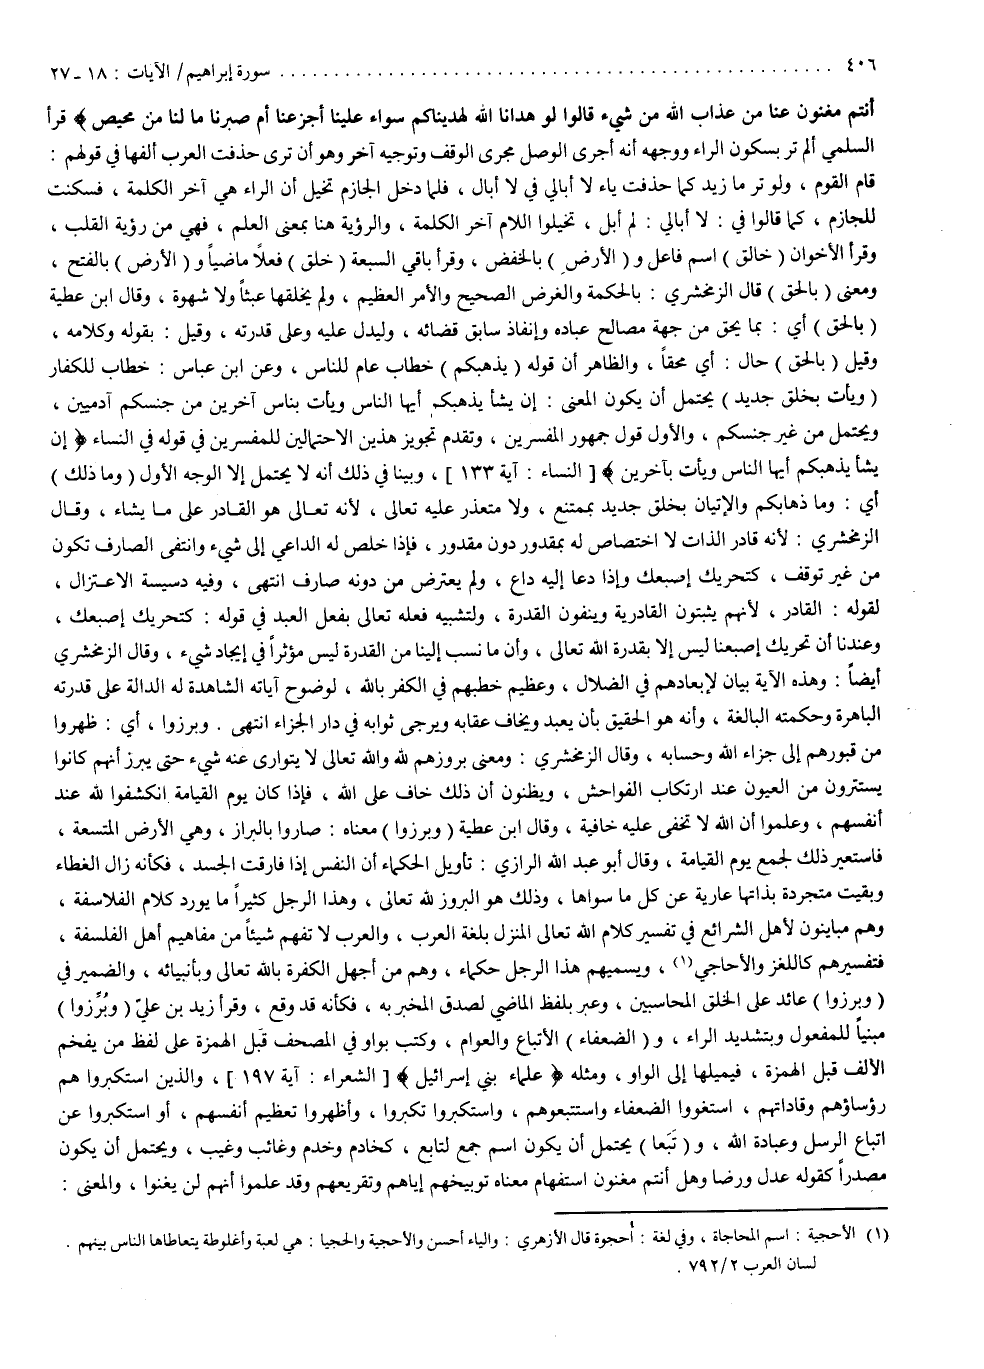 ٤٠٦ ........................................................ سورة إبراهيم/ الآيات : ١٨ ـ ٢٧
أنتم مغنون عنا من عذاب الله من شيء قالوا لو هدانا الله لهديناكم سواء علينا أجزعنا أم صبرنا ما لنا من محيص ﴾ قرأ
السلمي ألم تر بسكون الراء ووجهه أنه أجرى الوصل مجرى الوقف وتوجيه آخر وهو أن ترى حذفت العرب ألفها في قولهم :
قام القوم ، ولو تر ما زيد كما حذفت ياء لا أبالي في لا أبال ، فلما دخل الجازم تخيل أن الراء هي آخر الكلمة ، فسكنت
للجازم ، كما قالوا في : لا أبالي : لم أبل ، تخيلوا اللام آخر الكلمة ، والرؤية هنا بمعنى العلم ، فهي من رؤية القلب ،
وقرأ الأخوان ( خالق ) اسم فاعل و ( الأرض ) بالخفض ، وقرأ باقي السبعة ( خلق ) فعلاً ماضياً و ( الأرض ) بالفتح ،
ومعنى ( بالحق ) قال الزمخشري : بالحكمة والغرض الصحيح والأمر العظيم ، ولم يخلقها عبثاً ولا شهوة ، وقال ابن عطية
( بالحق ) أي : بما يحق من جهة مصالح عباده وإنفاذ سابق قضائه ، وليدل عليه وعلى قدرته ، وقيل : بقوله وكلامه ،
وقيل ( بالحق ) حال : أي محقاً ، والظاهر أن قوله ( يذهبكم ) خطاب عام للناس ، وعن ابن عباس : خطاب للكفار
( ويأت بخلق جديد ) يحتمل أن يكون المعنى : إن يشأ يذهبكم أيها الناس ويأت بناس آخرين من جنسكم آدميين ،
ويحتمل من غير جنسكم ، والأول قول جمهور المفسرين ، وتقدم تجويز هذين الاحتمالين للمفسرين في قوله في النساء ﴿ إن
يشأ يذهبكم أيها الناس ويأت بآخرين ﴾ [ النساء : آية ١٣٣ ] ، وبينا في ذلك أنه لا يحتمل إلا الوجه الأول ( وما ذلك )
أي : وما ذهابكم والإتيان بخلق جديد بممتنع ، ولا متعذر عليه تعالى ، لأنه تعالى هو القادر على ما يشاء ، وقال
الزمخشري : لأنه قادر الذات لا اختصاص له بمقدور دون مقدور ، فإذا خلص له الداعي إلى شيء وانتفى الصارف تكون
من غير توقف ، كتحريك إصبعك وإذا دعا إليه داع ، ولم يعترض من دونه صارف انتهى ، وفيه دسيسة الاعتزال ،
لقوله : القادر ، لأنهم يثبتون القادرية وينفون القدرة ، ولتشبيه فعله تعالى بفعل العبد في قوله : كتحريك إصبعك ،
وعندنا أن تحريك إصبعنا ليس إلا بقدرة الله تعالى ، وأن ما نسب إلينا من القدرة ليس مؤثراً في إيجاد شيء ، وقال الزمخشري
أيضاً : وهذه الآية بيان لإبعادهم في الضلال ، وعظيم خطبهم في الكفر بالله ، لوضوح آياته الشاهدة له الدالة على قدرته
الباهرة وحكمته البالغة ، وأنه هو الحقيق بأن يعبد ويخاف عقابه ويرجى ثوابه في دار الجزاء انتهى . وبرزوا ، أي : ظهروا
من قبورهم إلى جزاء الله وحسابه ، وقال الزمخشري : ومعنى بروزهم لله والله تعالى لا يتوارى عنه شيء حتى يبرز أنهم كانوا
يستترون من العيون عند ارتكاب الفواحش ، ويظنون أن ذلك خاف على الله ، فإذا كان يوم القيامة انكشفوا لله عند
أنفسهم ، وعلموا أن الله لا تخفى عليه خافية ، وقال ابن عطية ( وبرزوا ) معناه : صاروا بالبراز ، وهي الأرض المتسعة ،
فاستعير ذلك لجمع يوم القيامة ، وقال أبو عبد الله الرازي : تأويل الحكماء أن النفس إذا فارقت الجسد ، فكأنه زال الغطاء
وبقيت متجردة بذاتها عارية عن كل ما سواها ، وذلك هو البروز لله تعالى ، وهذا الرجل كثيراً ما يورد كلام الفلاسفة ،
وهم مباينون لأهل الشرائع في تفسير كلام الله تعالى المنزل بلغة العرب ، والعرب لا تفهم شيئاً من مفاهيم أهل الفلسفة ،
فتفسيرهم كاللغز والأحاجي(١) ، ويسميهم هذا الرجل حكماء ، وهم من أجهل الكفرة بالله تعالى وبأنبيائه ، والضمير في
( وبرزوا ) عائد على الخلق المحاسبين ، وعبر بلفظ الماضي لصدق المخبر به ، فكأنه قد وقع ، وقرأ زيد بن عليّ ( وبُرِّزوا )
مبنياً للمفعول وبتشديد الراء ، و ( الضعفاء ) الأتباع والعوام ، وكتب بواو في المصحف قبل الهمزة على لفظ من يفخم
الألف قبل الهمزة ، فيميلها إلى الواو ، ومثله ﴿ علماء بني إسرائيل ﴾ [ الشعراء : آية ١٩٧ ] ، والذين استكبروا هم
رؤساؤهم وقاداتهم ، استغووا الضعفاء واستتبعوهم ، واستكبروا تكبروا ، وأظهروا تعظيم أنفسهم ، أو استكبروا عن
اتباع الرسل وعبادة الله ، و ( تَبَعا ) يحتمل أن يكون اسم جمع لتابع ، كخادم وخدم وغائب وغيب ، ويحتمل أن يكون
مصدراً كقوله عدل ورضا وهل أنتم مغنون استفهام معناه توبيخهم إياهم وتقريعهم وقد علموا أنهم لن يغنوا ، والمعنى :
(١) الأحجية : اسم المحاجاة ، وفي لغة : أُحجوة قال الأزهري : والياء أحسن والأحجية والحجيا : هي لعبة وأغلوطة يتعاطاها الناس بينهم .
لسان العرب ٧٩٢/٢ .